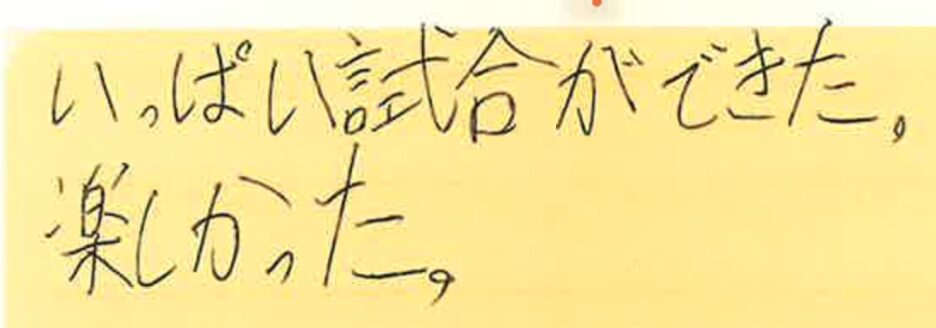 いっぱい試合ができた。
楽しかった。